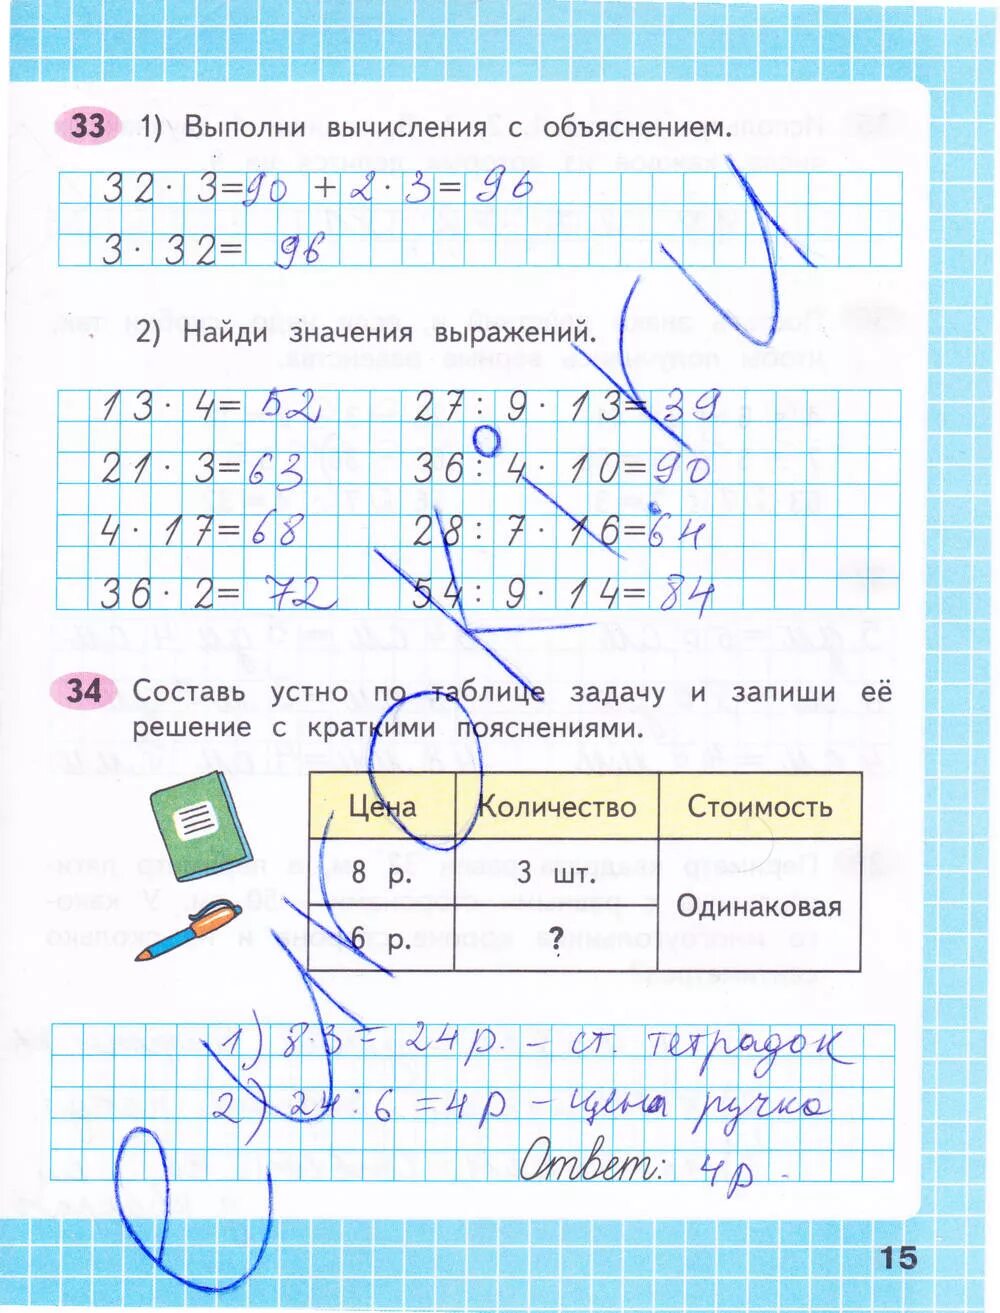 33 1) Выполни вычисления с объяснением.
32 · 3 = 90 + 2 · 3 = 96
3 · 32 = 96
2) Найди значения выражений.
13 · 4 = 52 27 : 9 · 13 = 39
21 · 3 = 63 36 : 4 · 10 = 90
4 · 17 = 68 28 : 7 · 16 = 64
36 · 2 = 72 54 : 9 · 14 = 84
34 Составь устно по таблице задачу и запиши её
решение с краткими пояснениями.
Цена Количество Стоимость
8 р. 3 шт. Одинаковая
6 р. ?
1) 83 = 24 р. – ст. тетрадок
2) 24 : 6 = 4 р – цена ручка
Ответ: 4 р.
15